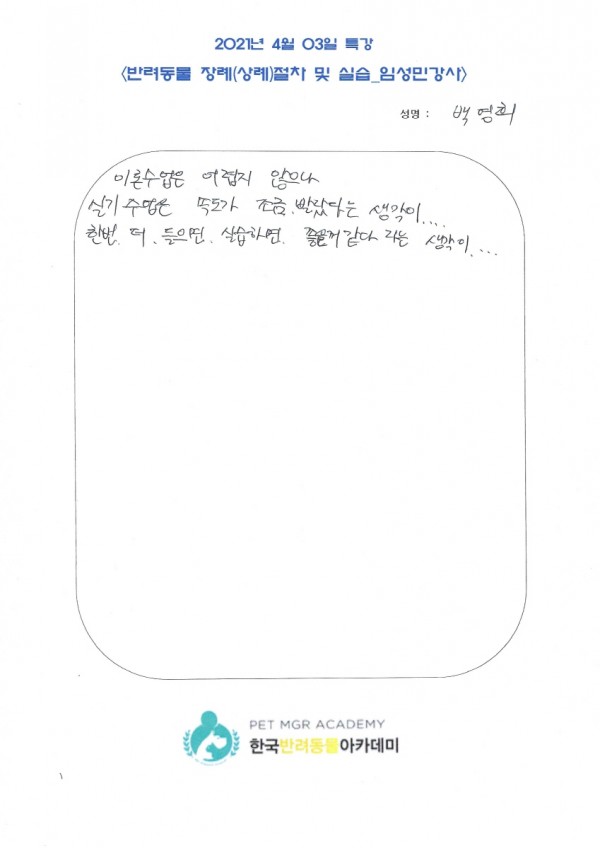 2021년 4월 03일 특강
<반려동물 장례(상례)절차 및 실습_임성민강사>
성명 : 백영희
이론수업은 어렵지 않으나
실기수업은 속도가 조금. 빨랐다는 생각이....
한번. 더. 들으면. 실습하면. 좋을꺼같다 라는 생각이...
PET MGR ACADEMY
한국반려동물아카데미